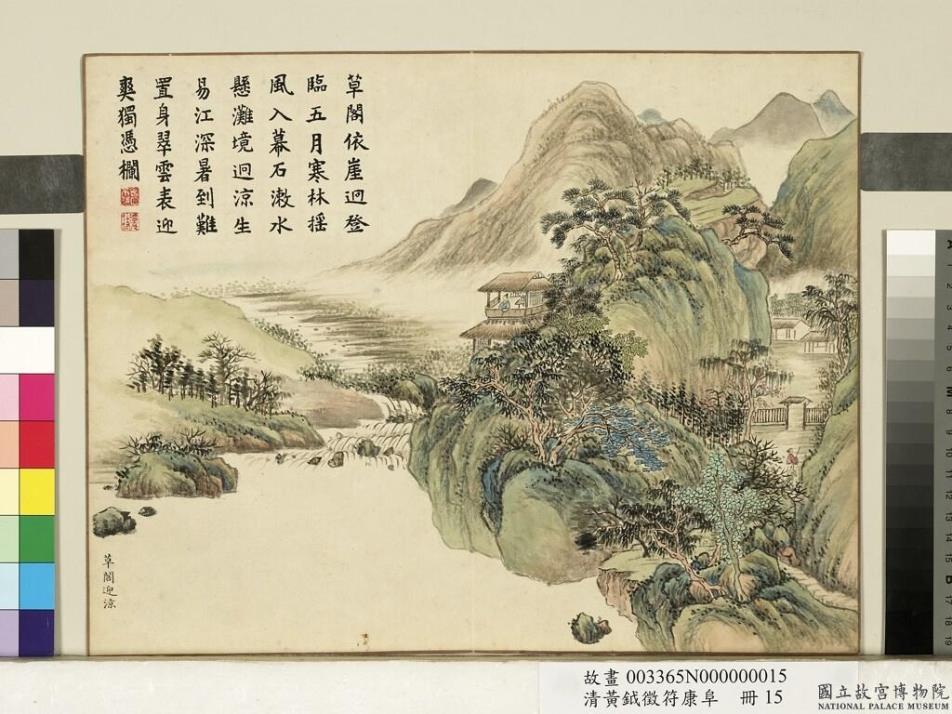 草閣依崖迥登
臨五月寒林揺
風入幕石漱水
懸灘境迥涼生
易江深暑到難
置身翠雲表迎
爽獨憑欄
草閣迎涼
故畫 003365N000000015
清黃鉞徵符康阜 冊 15
國立故宮博物院
NATIONAL PALACE MUSEUM
A
1
2
3
4
5
M
8
9
10
11
12
13
14
15
B
17
18
19